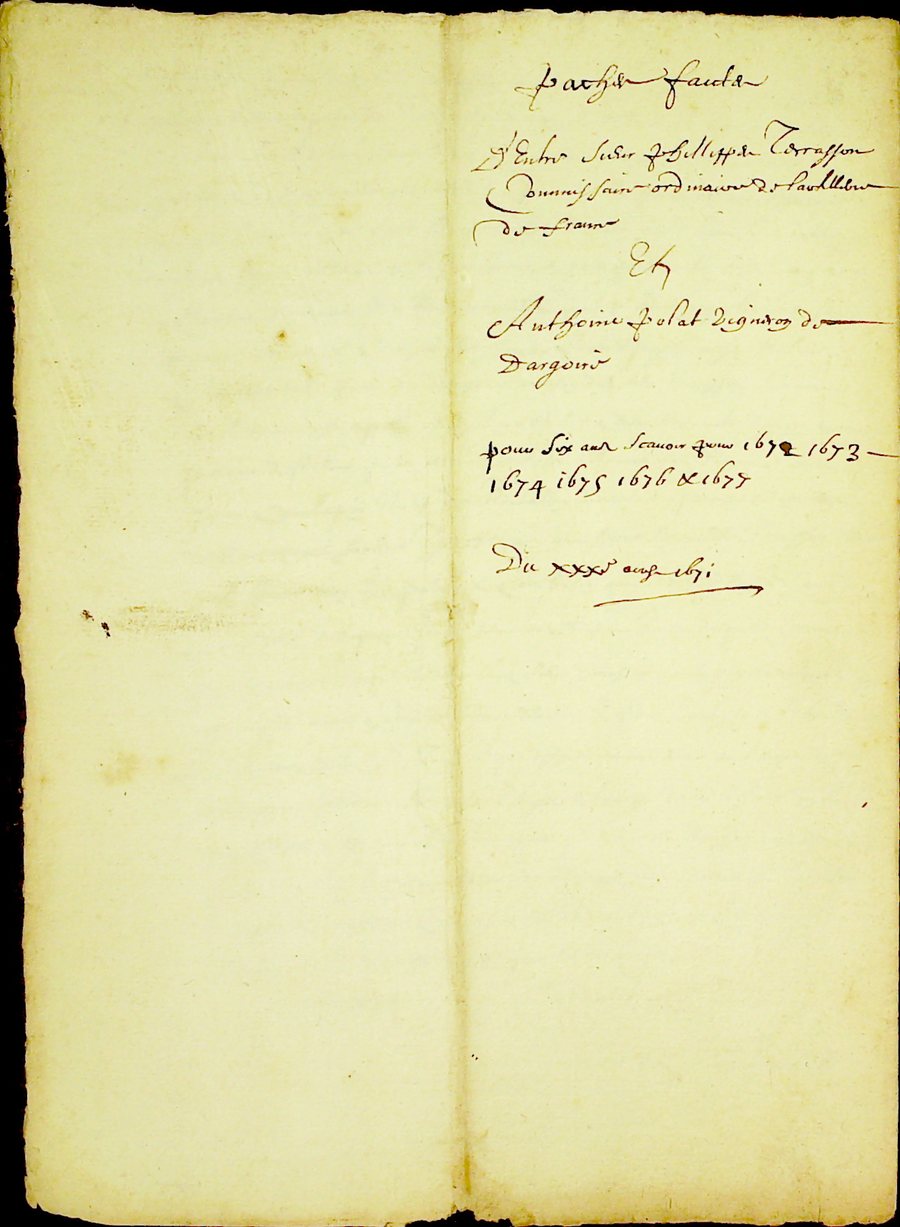 Pache faicte
D'Entre Sieur phillippe Terrasson
Commissaire ordinaire de l'artillerie
de france
Et
Anthoine polat vigneron de
Dargoire
pour Six ans scauoir pour 1672 1673
1674 1675 1676 & 1677
Du xxxe 1671